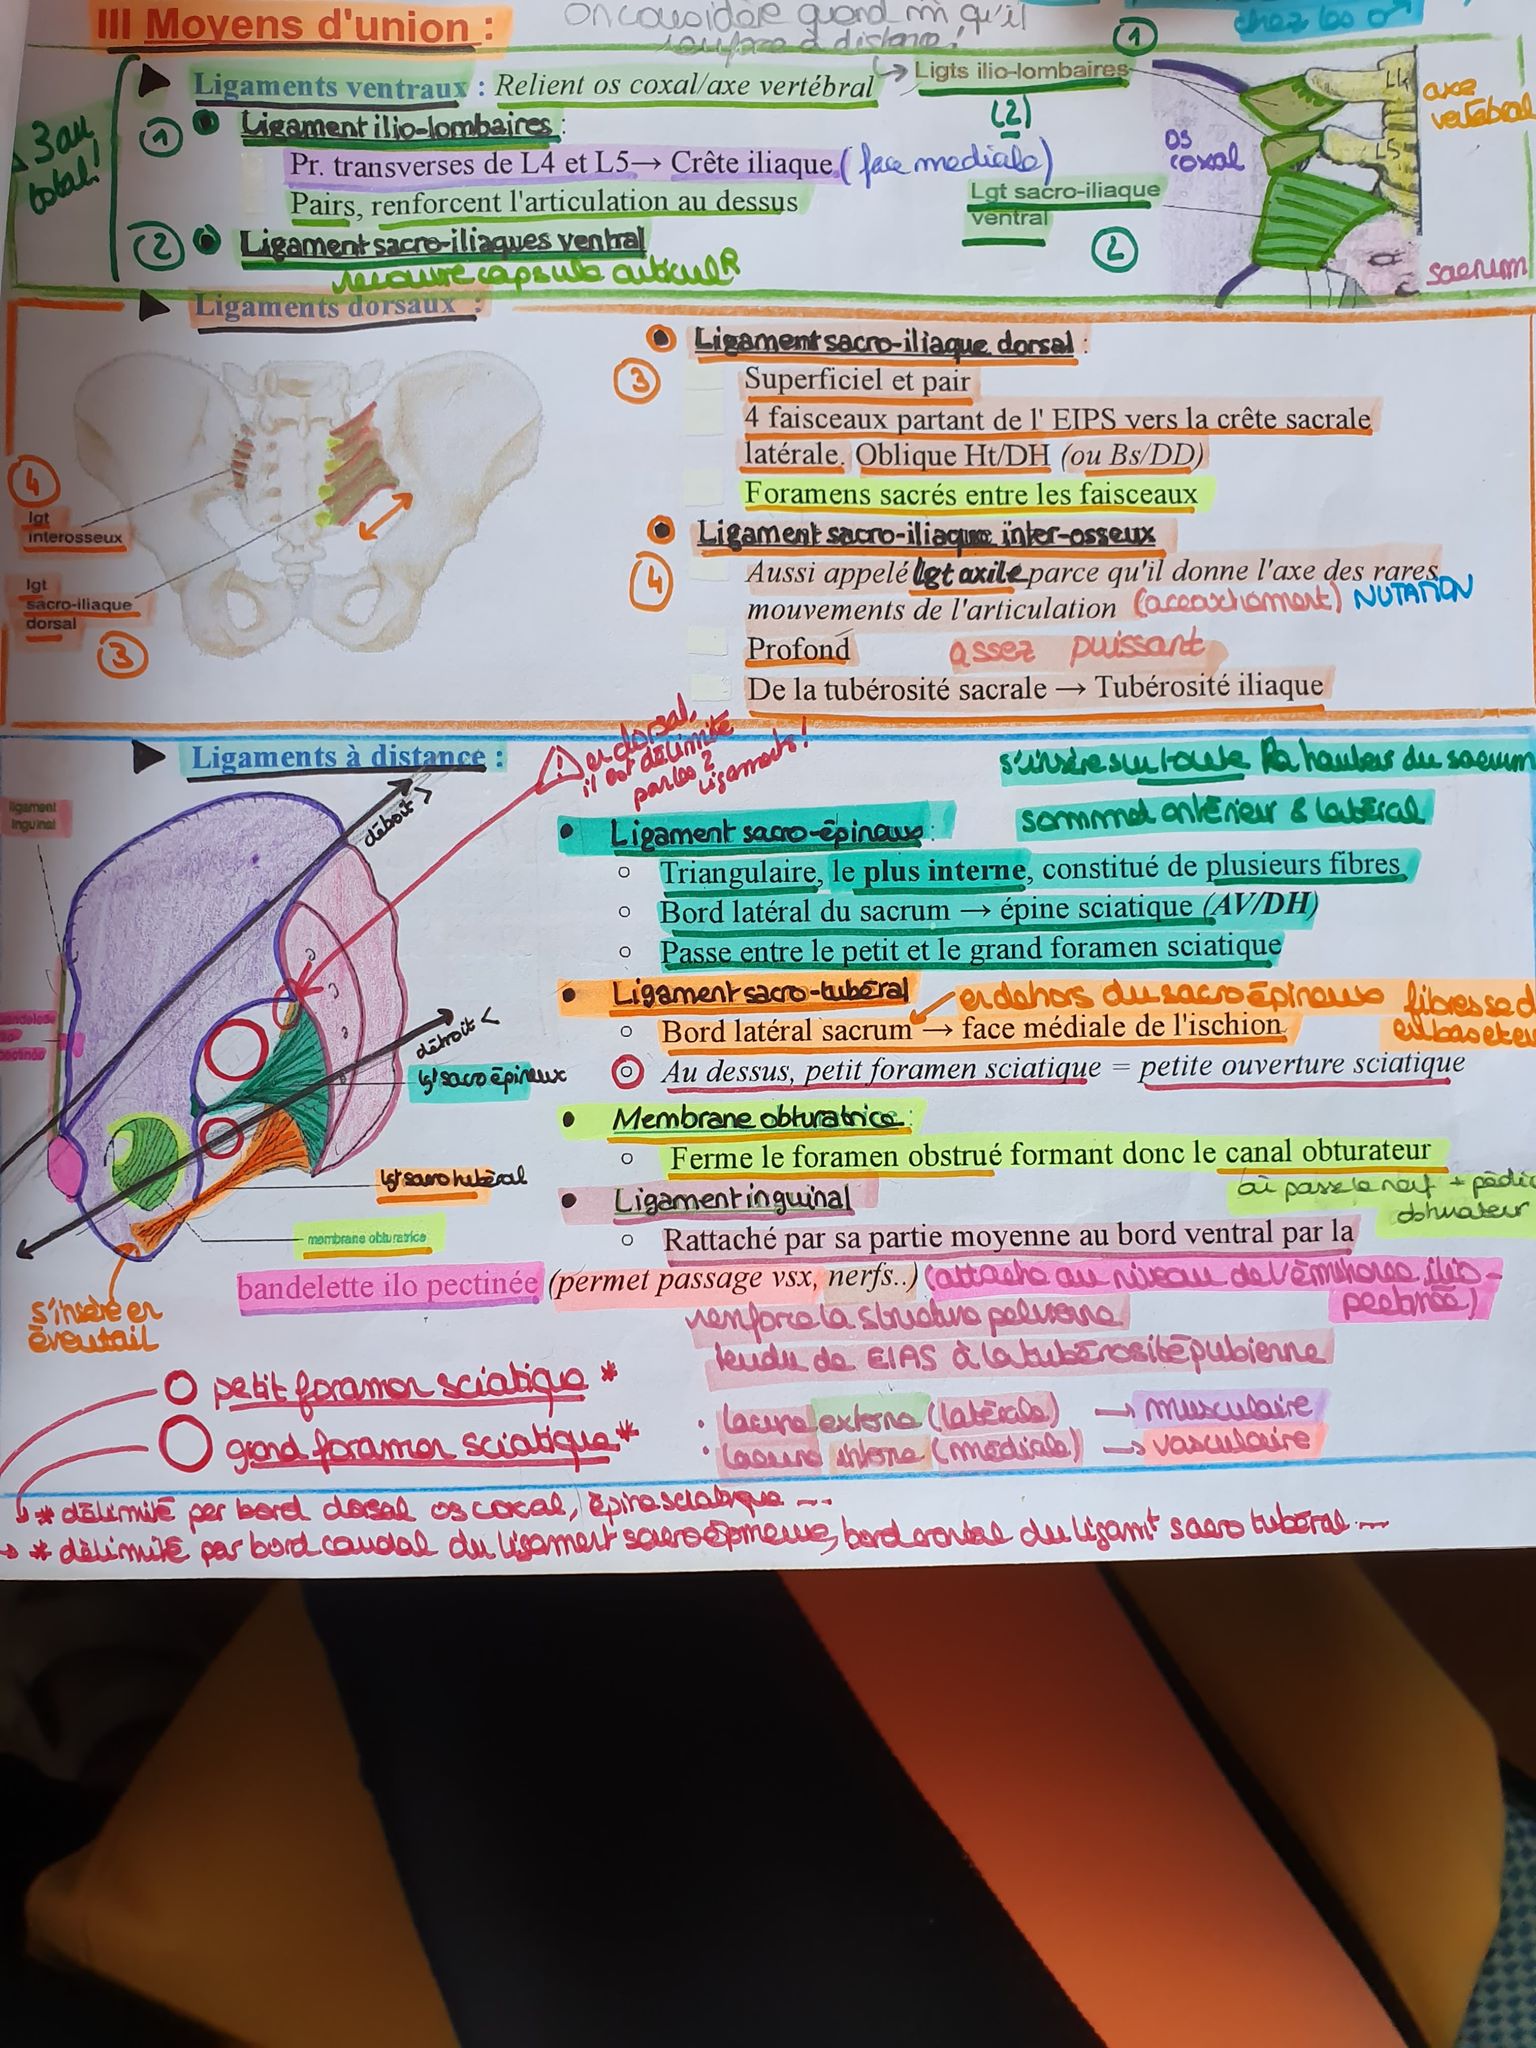 III Moyens d'union :
On considère quand m qu'il
renforce à distance!
chez les
1
3 au total!
Ligaments ventraux : Relient os coxal/axe vertébral
→ Ligts ilio-lombaires
(2)
1
Ligament ilio-lombaires :
Pr. transverses de L4 et L5→ Crête iliaque (face mediale)
Pairs, renforcent l'articulation au dessus
2
Ligament sacro-iliaques ventral
recouvre capsule articulR
Lgt sacro-iliaque
ventral
2
os
coxal
L4
L5
axe
vertébral
sacrum
Ligaments dorsaux :
4
lgt
interosseux
lgt
sacro-iliaque
dorsal
3
Ligament sacro-iliaque dorsal :
3
Superficiel et pair
4 faisceaux partant de l' EIPS vers la crête sacrale
latérale. Oblique Ht/DH (ou Bs/DD)
Foramens sacrés entre les faisceaux
Ligament sacro-iliaque inter-osseux
4
Aussi appelé lgt axile parce qu'il donne l'axe des rares
mouvements de l'articulation (accouchement) NUTATION
Profond assez puissant
De la tubérosité sacrale → Tubérosité iliaque
Ligaments à distance :
! en dorsal,
il est délimité
par les 2
ligaments!
s'insère sur toute la hauteur du sacrum
sommet antérieur & latéral
ligament
inguinal
détroit >
détroit <
lgt sacro épineux
lgt sacro tubéral
membrane obturatrice
s'insère en
éventail
Ligament sacro-épineux :
Triangulaire, le plus interne, constitué de plusieurs fibres
Bord latéral du sacrum → épine sciatique (AV/DH)
Passe entre le petit et le grand foramen sciatique
Ligament sacro-tubéral en dehors du sacro épineux fibres
Bord latéral sacrum → face médiale de l'ischion
en bas et
Au dessus, petit foramen sciatique = petite ouverture sciatique
Membrane obturatrice :
Ferme le foramen obstrué formant donc le canal obturateur
où passe le nerf +
obturateur
Ligament inguinal
Rattaché par sa partie moyenne au bord ventral par la
bandelette ilo pectinée (permet passage vsx, nerfs..) (attache au niveau de l'éminence ilio-
pectinée)
renforce la structure pelvienne
tendu de EIAS à la tubérosité pubienne
petit foramen sciatique *
grand foramen sciatique *
. lacune externe (latérale) → musculaire
. lacune interne (médiale) → vasculaire
* délimité par bord dorsal os coxal, épine sciatique ...
* délimité par bord caudal du ligament sacro épineux, bord cranial du ligamt sacro tubéral ...